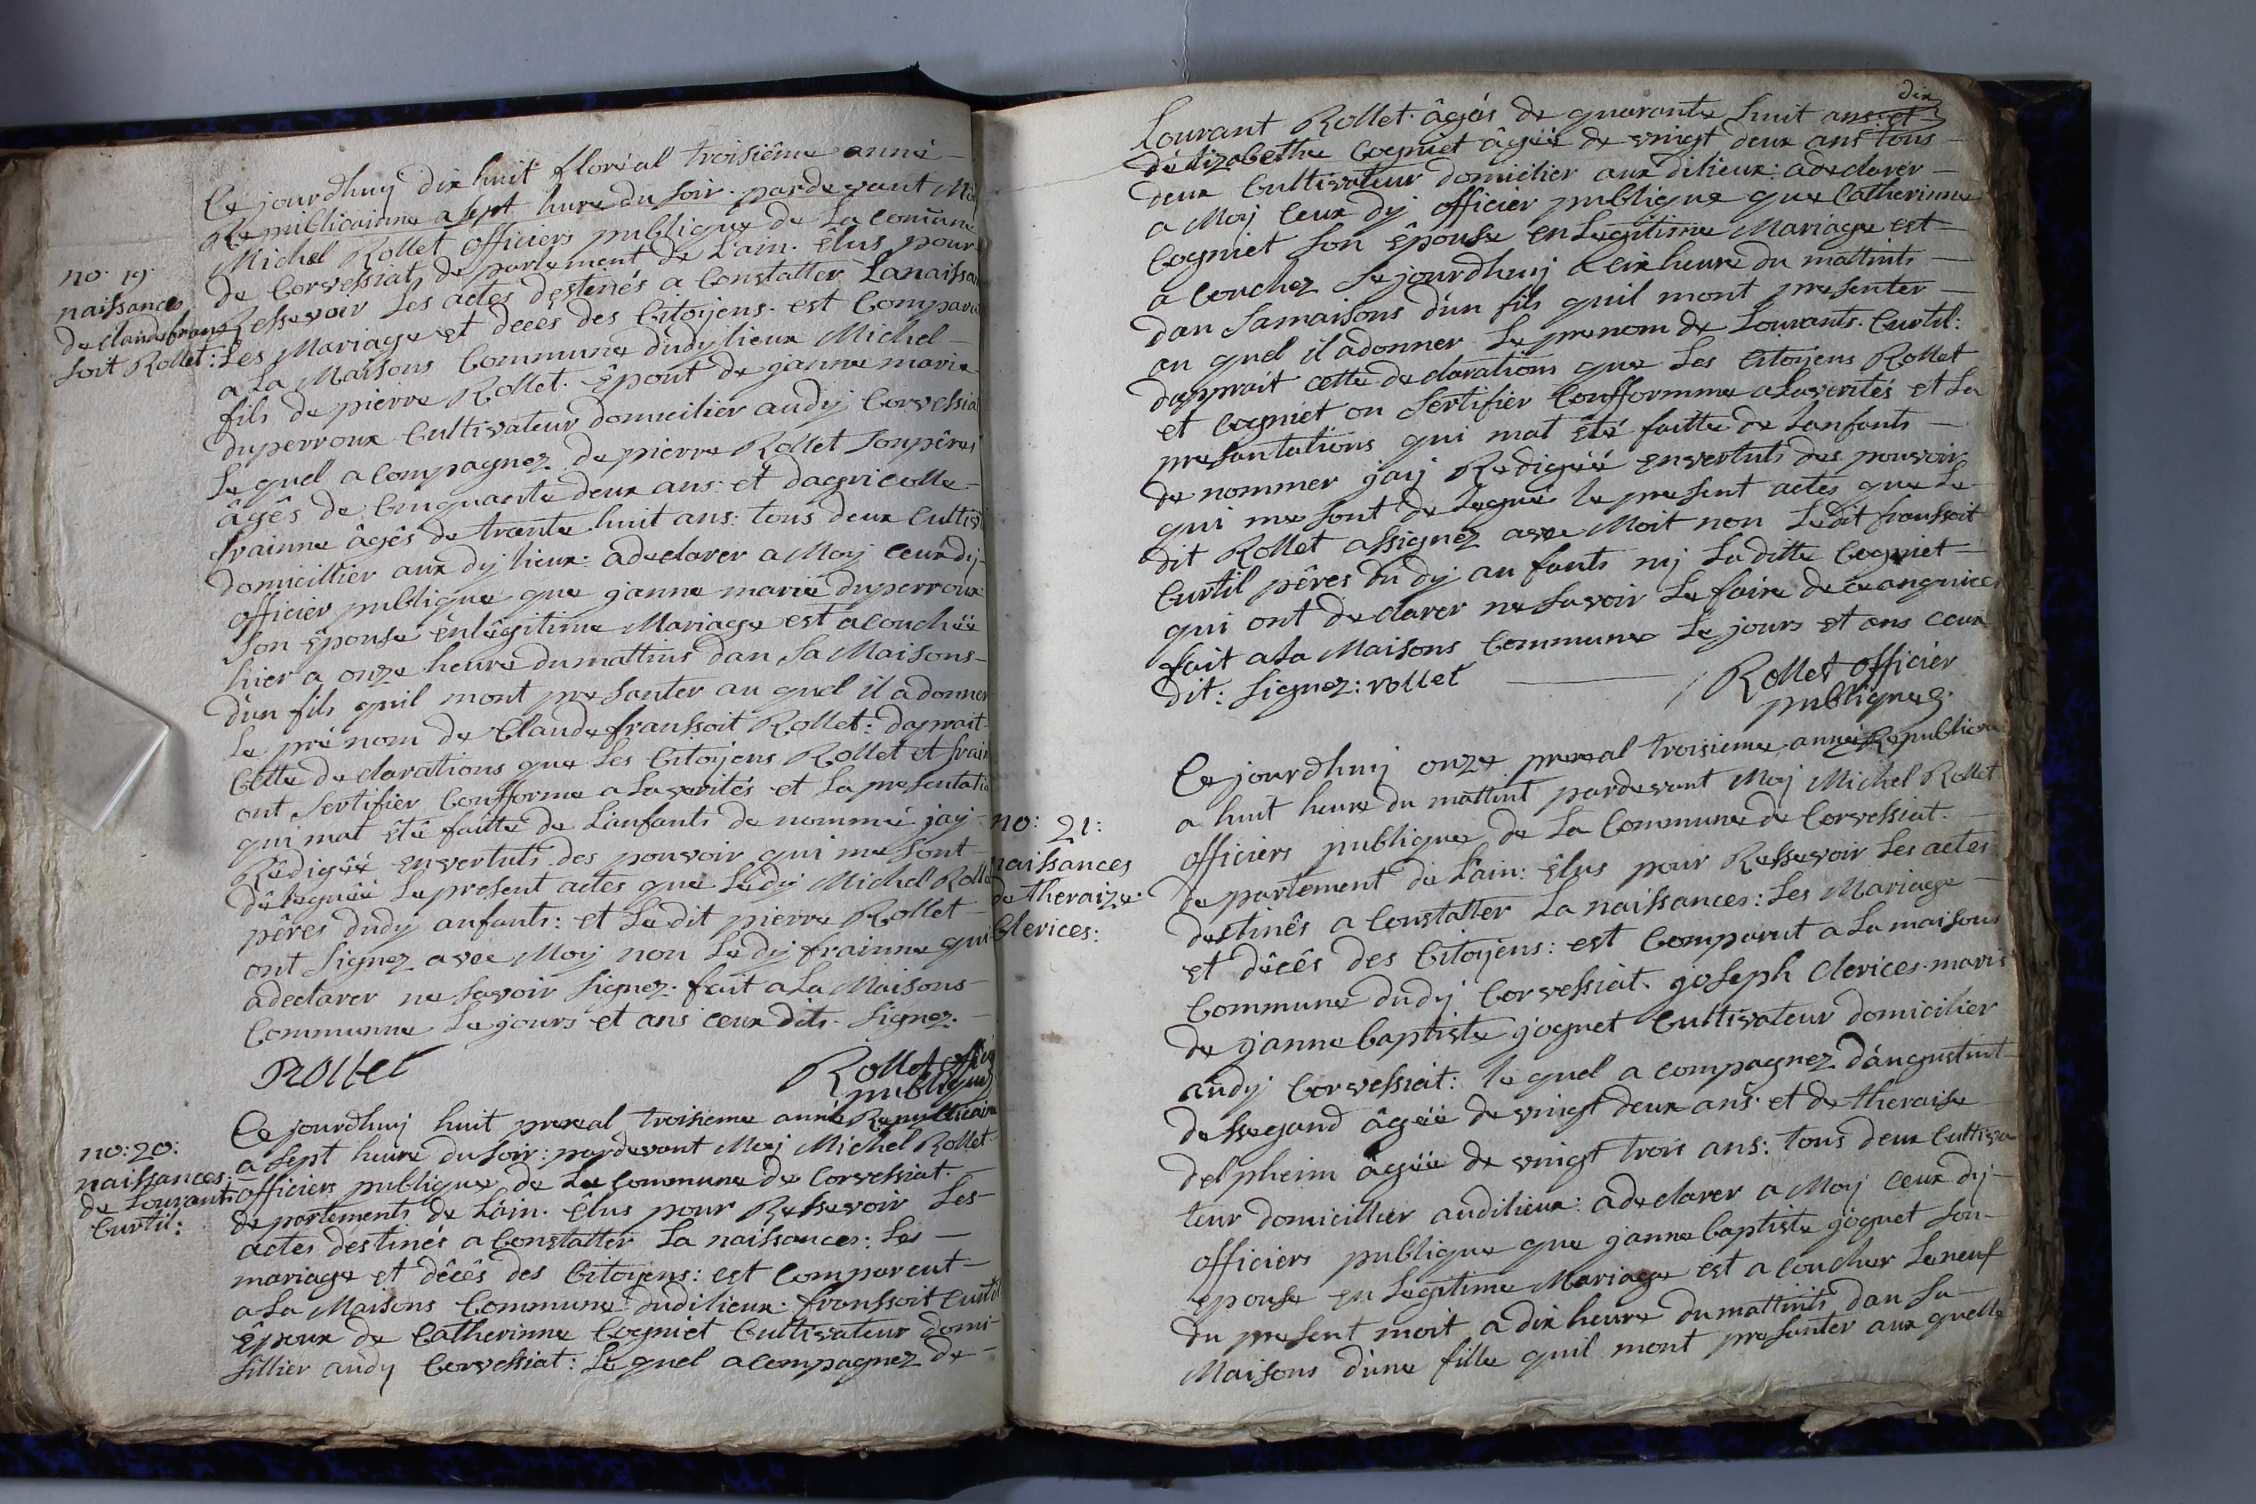 Ce jourdhuy dix huit floréal troisiême anné
Republicainne a sept heure du soir. pardevant Moy
Michel Rollet officiers publique de La comune
no: 19:
naissances
de claude fran
soit Rollet:
de Corvessiat, de partement de L'ain. êlus pour
Ressevoir Les actes destinés a Constatter Lanaissan
Les Mariage et decés des Citoyens. est Comparu
a La Maisons Commune dudy lieux Michel
fils de pierre Rollet. êpout de janne marie
duperroux Cultivateur domicilier audy Corvessiat
Le quel a compagnez de pierre Rollet Sonpêres
âgês de Cinquante deux ans: et dagricolle
frainne âgês de trante huit ans: tous deux Cultiv
domicillier aux dy lieux: adeclarer a Moy ceux dy
officier publique que janne marie duperroux
Son êpouse en lêgitime Mariage est acouchéé
hier a onze heure dumattins dan Sa Maisons
d'un fils quil mont presanter au quel il adonner
Le prénom de Claude franssoit Rollet: daprait
Cette declarations que Les Citoyens Rollet et frain
ont Sertifier Confforme a Laverités et La presentatio
qui mat êtê faitte de Lanfants de nommé jay
Rêdigéé envertuts des pouvoir qui me sont
dêleguéé Lepresent actes que Ledy Michel Rollet
pêres dudy anfants: et Ledit pierre Rollet
ont Signez avec Moy non Ledy frainne qui
adeclarer ne savoir Signez. fait a La Maisons
Communne Le jours et ans ceux dits. Signez.
Rollet
Rollet offici
publique
no: 20:
naissances
de Lourants
Curtil:
Ce jourdhuy huit prereal troisieme anné Republicain
a Sept heure du soir: pardevant Moy Michel Rollet
officiers publique de La Commune de Corvessiat.
departements de Lain. êlus pour Ressevoir Les
actes destinés a Constatter La naissances: Les
mariage et dêcês des Citoyens: est Comparent
a La Maisons Commune dudilieux: franssoit Curtil
êpoux de Catherinne Cogniet Cultivateur domi
sillier audy Corvessiat: Le quel acompagnez de
dix
Lourant Rollet. âgés de quarante huit ans et
délizabethe Cogniet âgéé de vingt deux ans tous
deux Cultivateur domicilier aux dilieux: adeclarer
a Moy Ceux dy officier publique que Catherinne
Cogniet Son êpouse en Legitime Mariage est
a Couchez Sejourdhuy a Cix heure du mattints
dan Samaisons d'un fils quil mont presenter
au quel il adonner Le prenom de Lourants. Curtil:
daprait cette declarations que Les Citoyens Rollet
et Cogniet on Sertifier Confformme a Laverités et La
presantations qui mat êté faitte de Lanfants
de nommer jay Redigéé envertuts des pouvoir
qui me sont de Legué le present actes que Le
dit Rollet assignez avec Moit non Ledit franssoit
Curtil pêres du dy anfants nj Laditte Cogniet
qui ont declarer ne savoir Le faire de ce anquices
fait a La Maisons Commune Le jours et ans ceux
dit: Signez: rollet
Rollet officier
publique
no: 21:
naissances
de theraize
Clerices:
Ce jourdhuy onze prereal troisieme anné Republicain
a huit heure du mattint pardevant Moy Michel Rollet
officiers publique de La Commune de Corvessiat.
departement de L'ain: êlus pour Ressevoir Les actes
destinês a Constatter La naissances: Les Mariage
et dêcês des Citoyens: est Comparut a La maisons
Commune dudy Corvessiat. joseph Clerices. maris
de janne baptiste joguet Cultivateur domicilier
audy Corvessiat: le quel a compagnez d'angustint
dessegand âgéé de vingt deux ans. et de theraise
delpheim âgéé de vingt trois ans: tous deux Cultiva
teur domicillier audilieux: adeclarer a Moy ceux dy
officiers publique que janne baptiste joguet Son
epouse en Legitime Mariage est a coucher Le neuf
du present moit a dix heure du mattints dan Sa
Maisons d'une fille quil mont presanter aux quelle